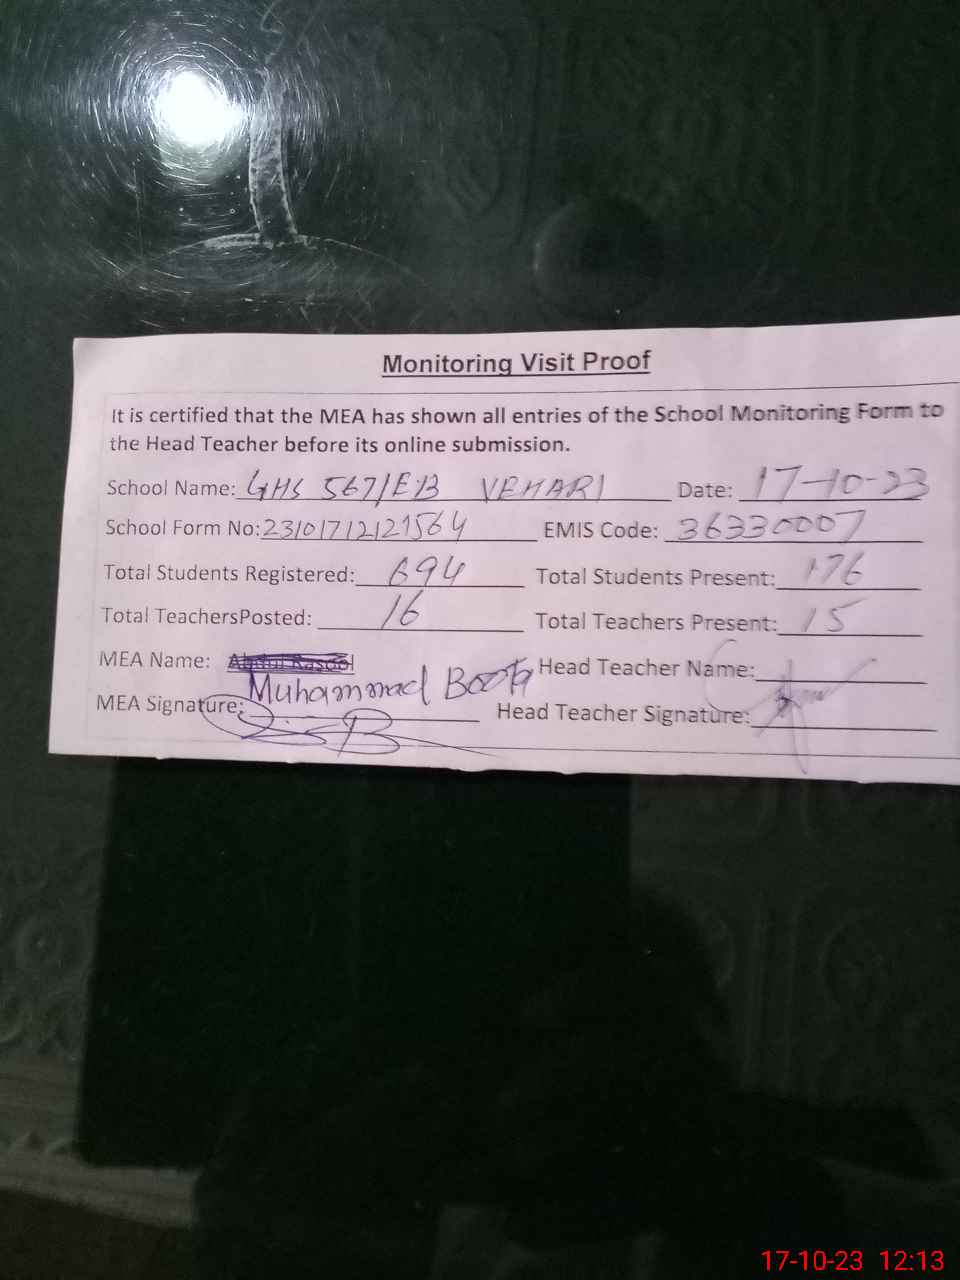 Monitoring Visit Proof
It is certified that the MEA has shown all entries of the School Monitoring Form to
the Head Teacher before its online submission.
School Name: GHS 567/EB VEHARI Date: 17-10-23
School Form No: EMIS Code: 36330007
Total Students Registered: 694 Total Students Present: 176
Total TeachersPosted: 16 Total Teachers Present: 15
MEA Name: Abdul Rasool Head Teacher Name:
Muhammad Boota
MEA Signature: Head Teacher Signature:
17-10-23 12:13